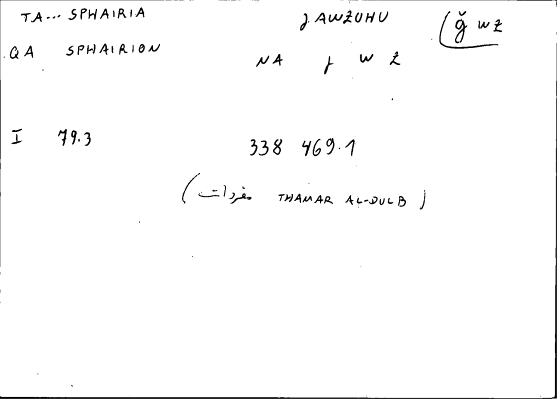 TA... SPHAIRIA JAWŻUHU (ǧ wż
QA SPHAIRION NA J W Ż
I 79.3 338 469.1
(مفردات THAMAR AL-DULB)